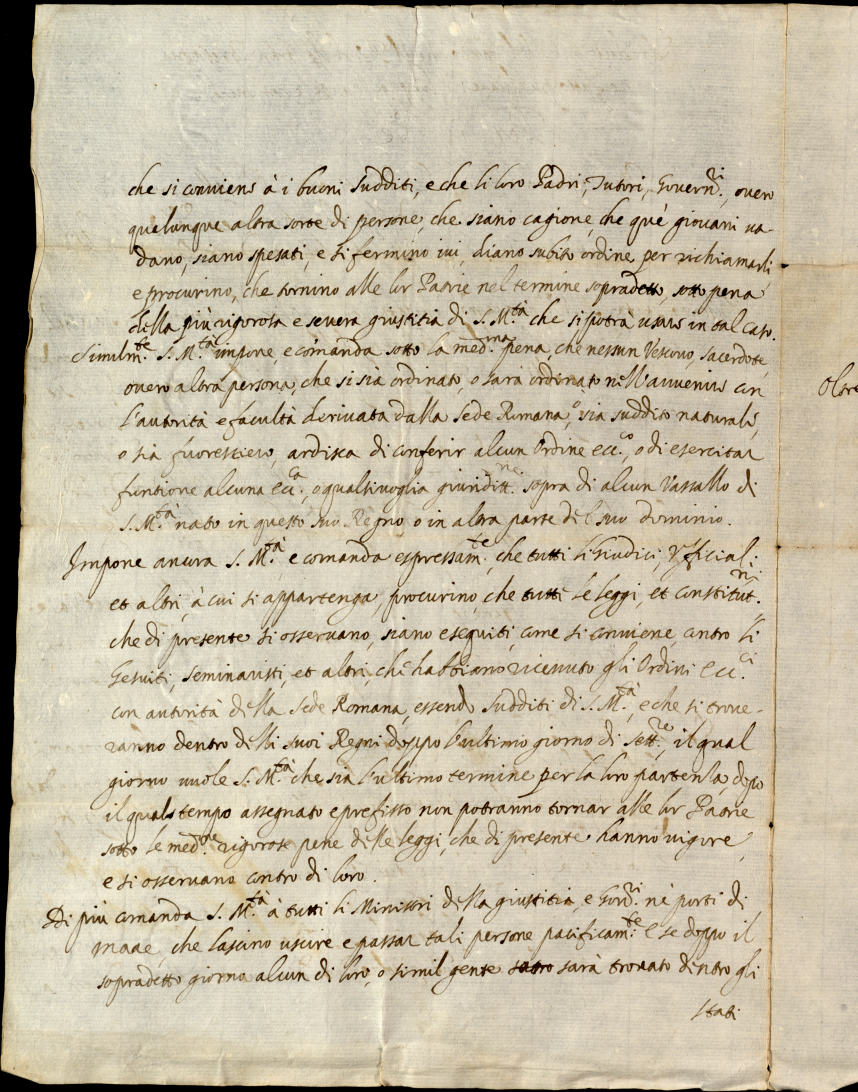 che si conviene à i buoni sudditi, e che li loro Padri, Tutori, Govern.ri, overo
qualunque altra sorte di persone, che siano cagione, che què giovani va-
dano, siano spesati, e si fermino ivi, diano subito ordine per richiamarli,
e procurino, che tornino alle lor Patrie nel termine sopradetto, sotto pena
della più rigorosa e severa giustitia di S. M.tà che si potrà usare in tal caso.
Similm.te S. M.tà impone, e comanda sotto la med.ma pena, che nessun Vescovo, sacerdote
overo altra persona, che si sià ordinato, o sarà ordinato nell'avvenire con
l'autorità e facultà derivata dalla Sede Romana, o sia suddito naturale,
o sia fuorestiero, ardisca di conferir alcun Ordine ecc.co, o di esercitar
funtione alcuna ecc.ca, o qualsivoglia giuridit.ne sopra di alcun Vassallo di
S. M.tà nato in questo suo Regno, o in altra parte del suo dominio.
Impone ancora S. M.tà e comanda espressam.te, che tutti li Giudici, Ufficiali
et altri, à cui si appartenga, procurino, che tutte le leggi, et constitut.ni
che di presente si osservano, siano eseguiti, come si conviene, contro li
Gesuiti, seminaristi, et altri, che habbiano ricevuto gli Ordini ecc.ci
con autorità della Sede Romana, essendo sudditi di S. M.tà, e che si trove-
ranno dentro delli suoi Regni doppo l'ultimo giorno di Sett.re, il qual
giorno vuole S. M.tà che sia l'ultimo termine per la loro partenza, dopo
il quale tempo assegnato e prefisso non potranno tornar alle lor Patrie
sotto le med.me rigorose pene delle leggi, che di presente hanno vigore,
e si osservano contro di loro.
Di più comanda S. M.tà à tutti li Ministri della giustitia, e Gov.ri nè porti di
mare, che lascino uscire e passar tali persone pacificam.te E se doppo il
sopradetto giorno alcun di loro, o simil gente sarà trovato dentro gli
Stati
Oltre